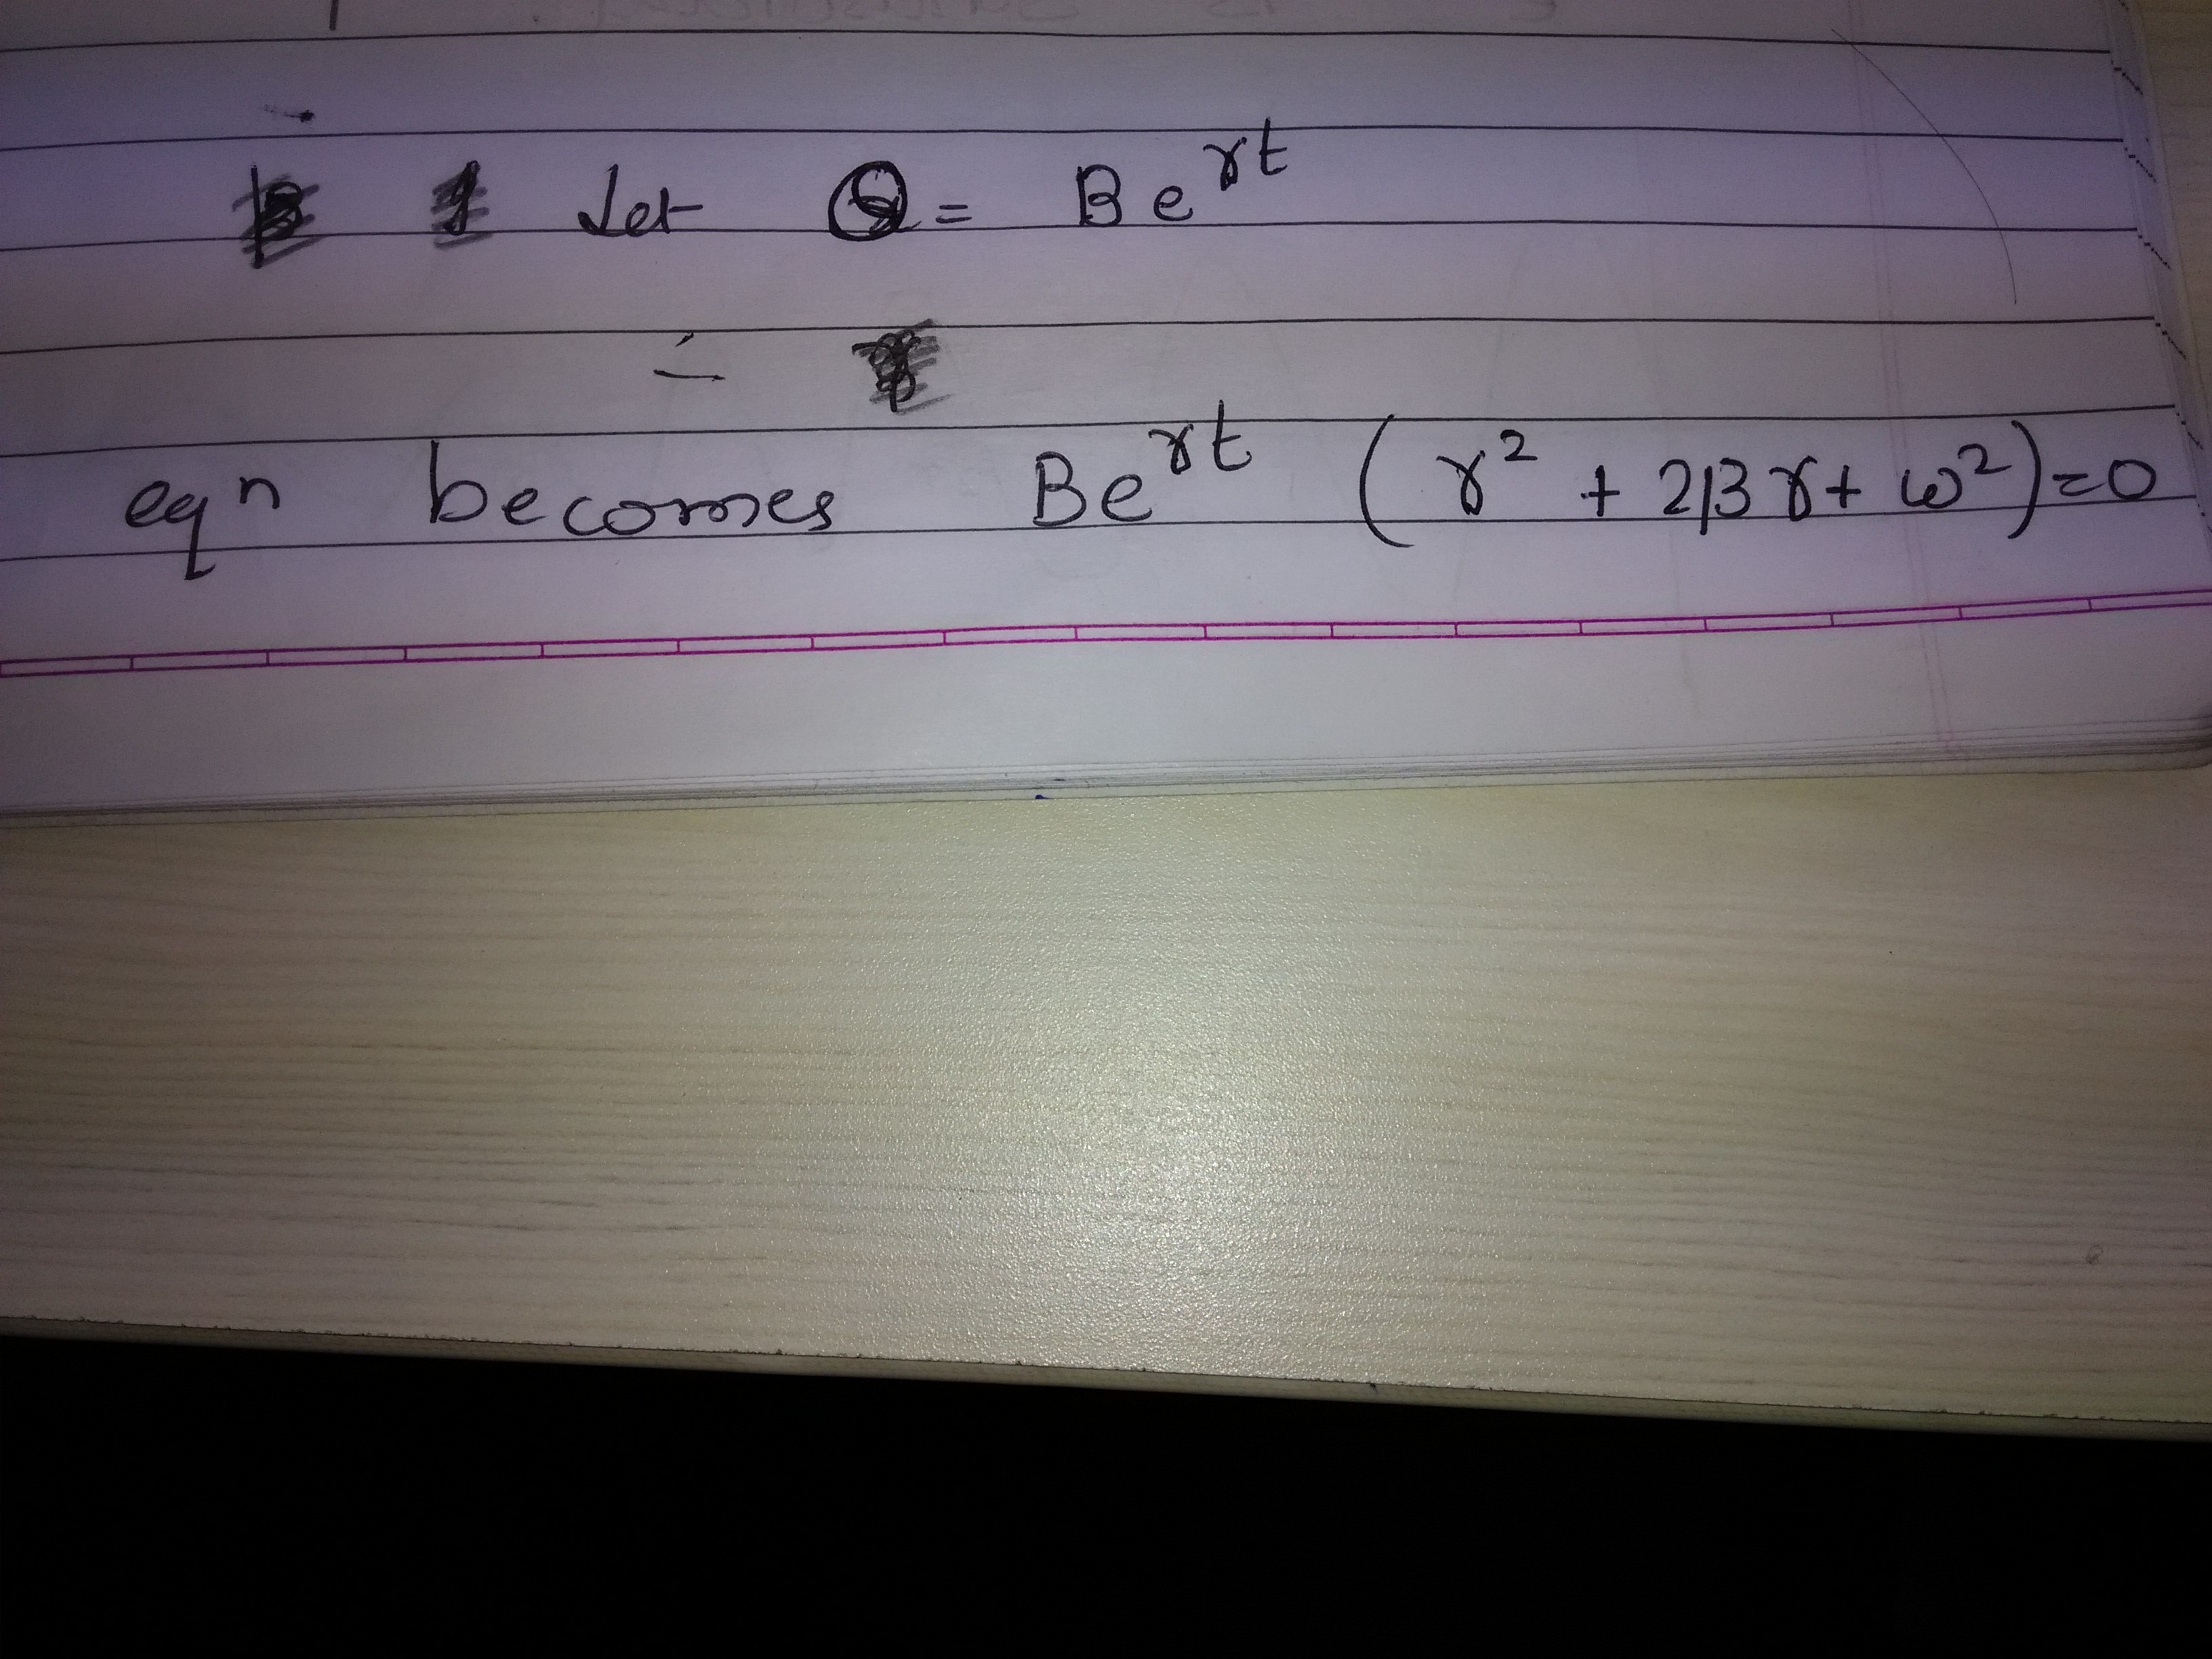 Let Q = Be^γt
eqn becomes Be^γt (γ² + 2βγ + ω²) = 0